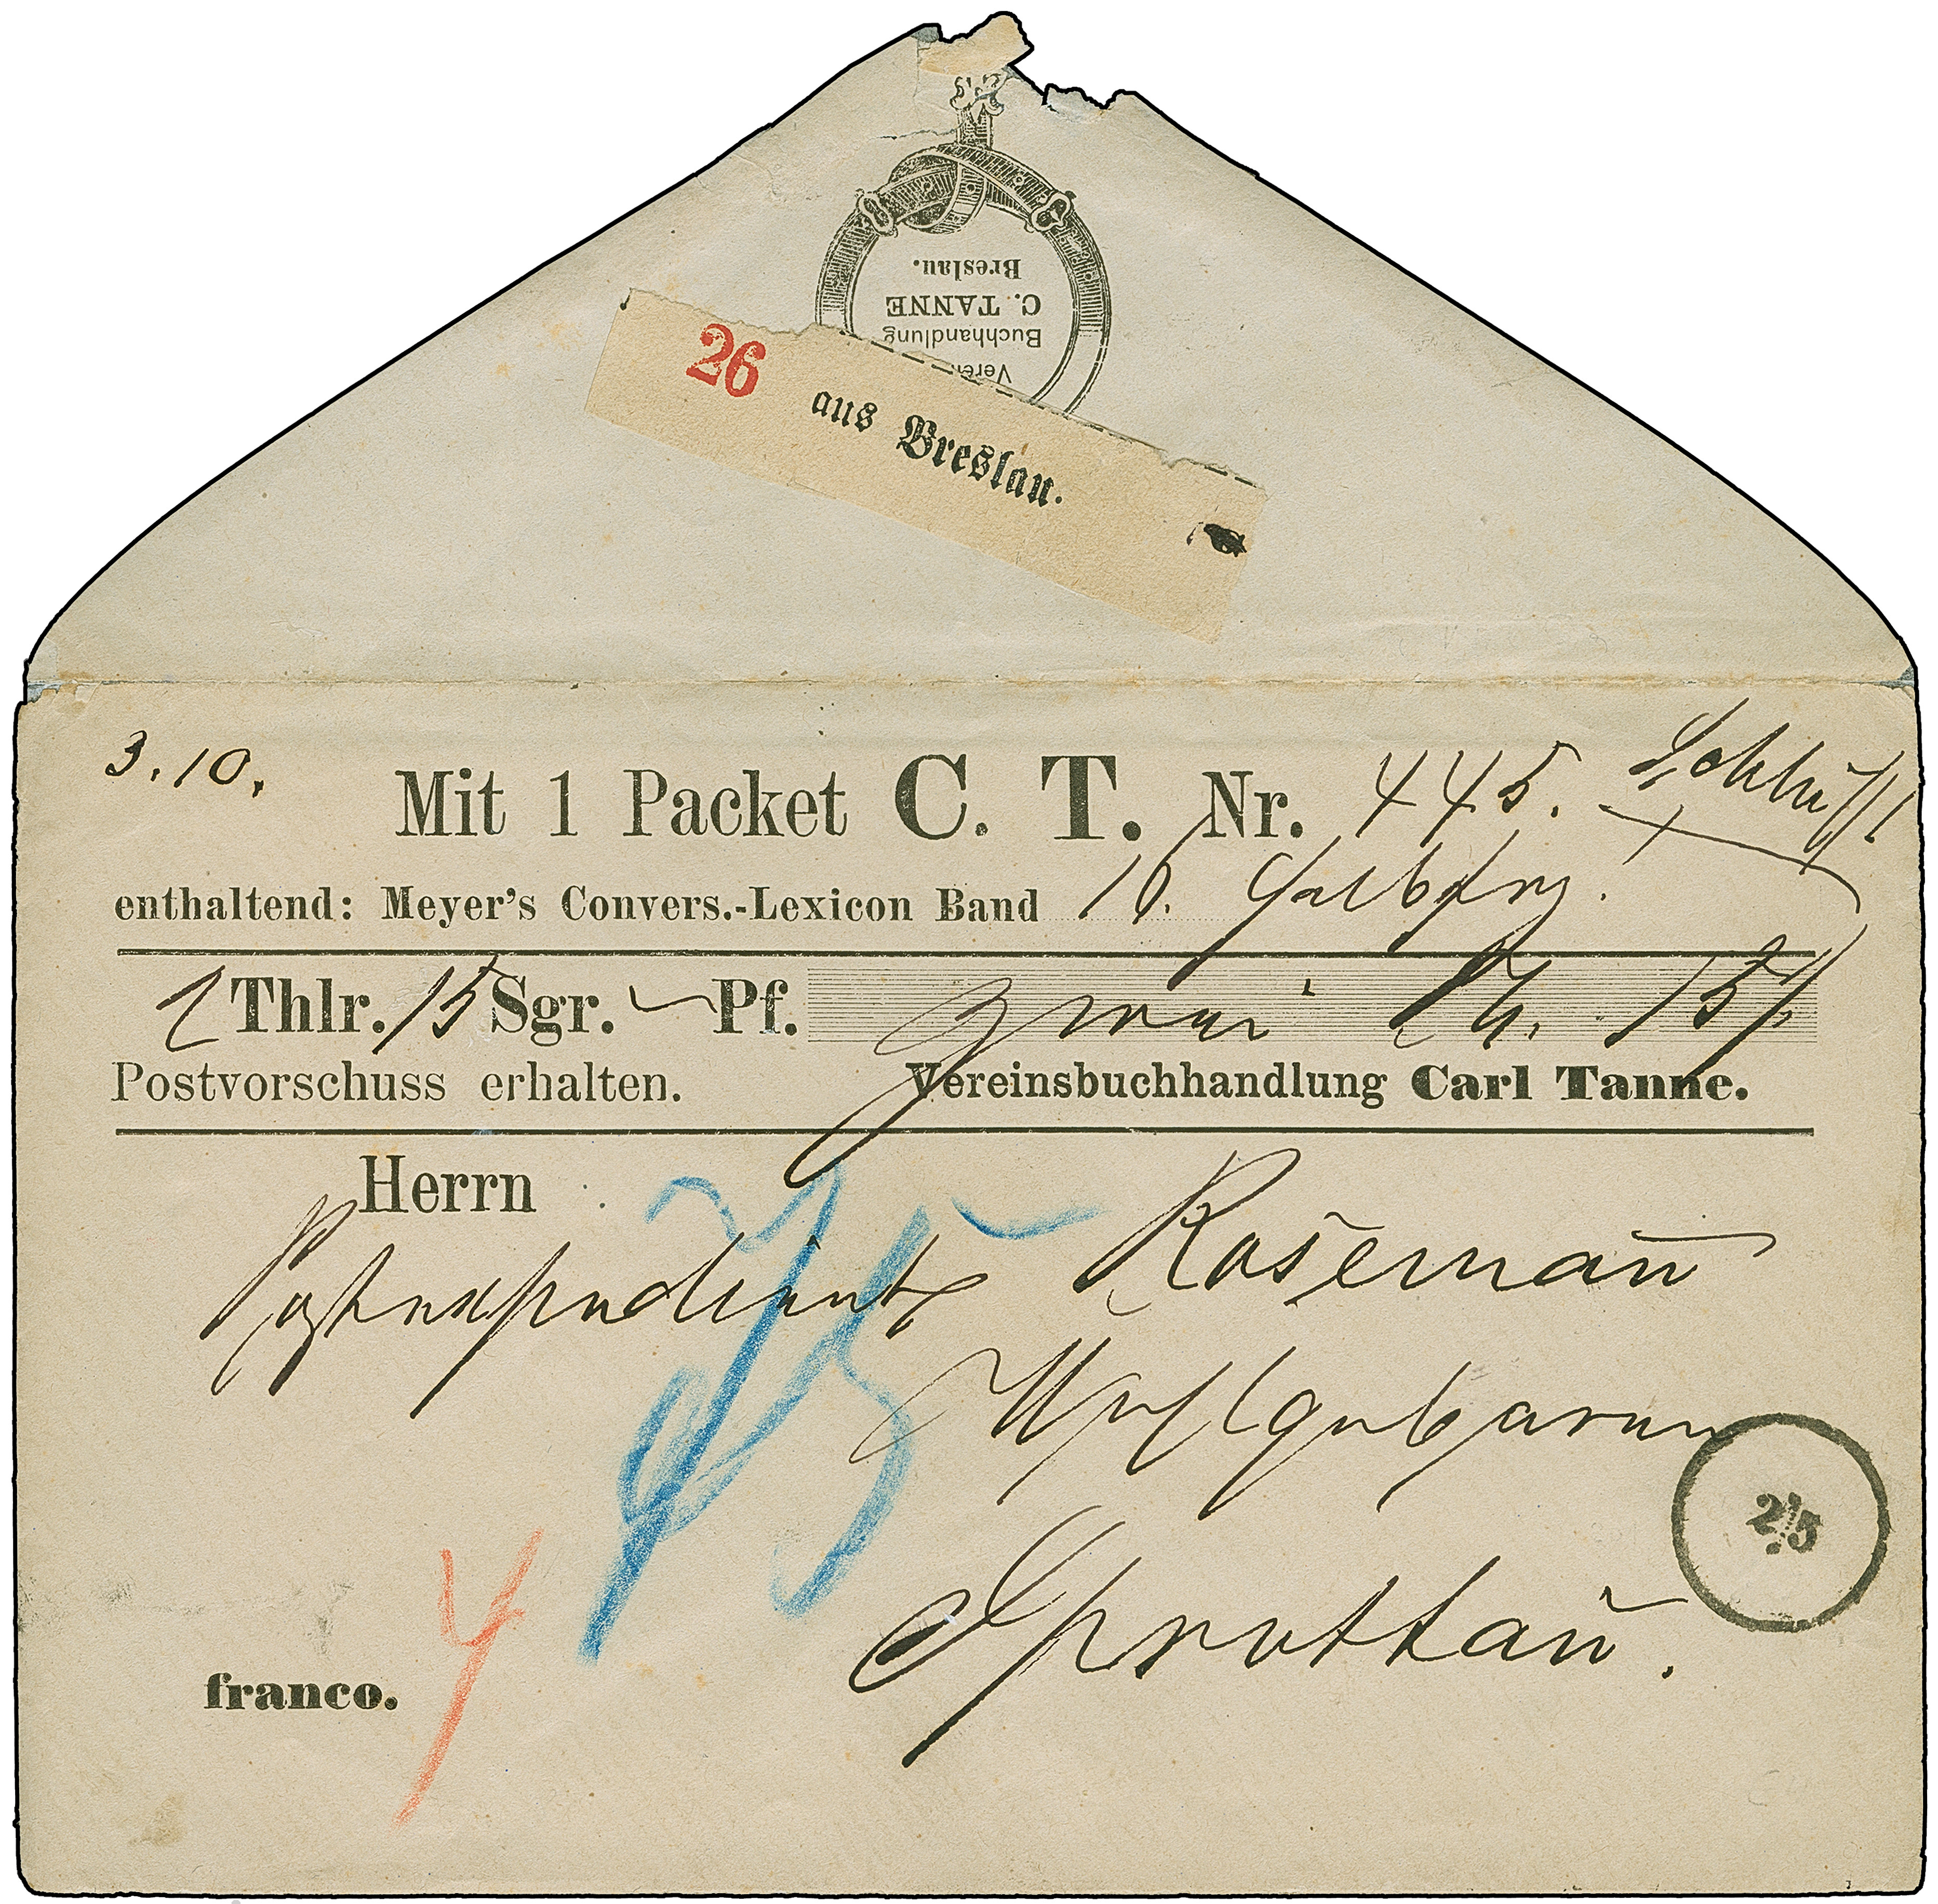 Breslau.
C. TANNE
Buchhandlung
26 aus Breslau.
3.10.
Mit 1 Packet C. T. Nr. 445.
enthaltend: Meyer's Convers.-Lexicon Band 10. Halbfrz.
2 Thlr. 15 Sgr. — Pf. zwei Th. 15
Postvorschuss erhalten. Vereinsbuchhandlung Carl Tanne.
Herrn
Postexpedient Rosemañ
Sprottau.
2/5
franco.
4